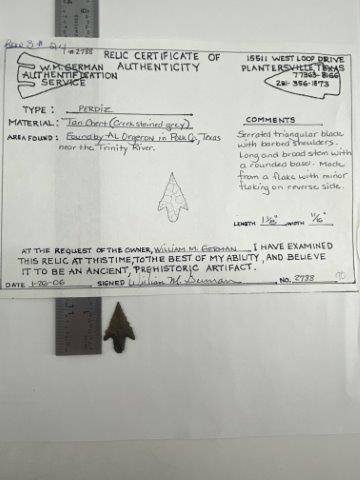 Row 3 # 24
#2788
RELIC CERTIFICATE OF
AUTHENTICITY
W.M. GERMAN
AUTHENTIFICATION
SERVICE
15511 WEST LOOP DRIVE
PLANTERSVILLE, TEXAS
77363-8166
281-356-1873
TYPE: PERDIZ
MATERIAL: Tan Chert (Creek stained grey)
AREA FOUND: Found by AL Orgeron in Polk Co, Texas
near the Trinity River.
COMMENTS
Serrated triangular blade
with barbed shoulders.
Long and broad stem with
a rounded base. Made
from a flake with minor
flaking on reverse side.
LENGTH 1 1/2" WIDTH
AT THE REQUEST OF THE OWNER, WILLIAM M. GERMAN I HAVE EXAMINED
THIS RELIC AT THIS TIME, TO THE BEST OF MY ABILITY, AND BELIEVE
IT TO BE AN ANCIENT, PREHISTORIC ARTIFACT.
DATE 1-20-06 SIGNED William M. German NO. 2788
90